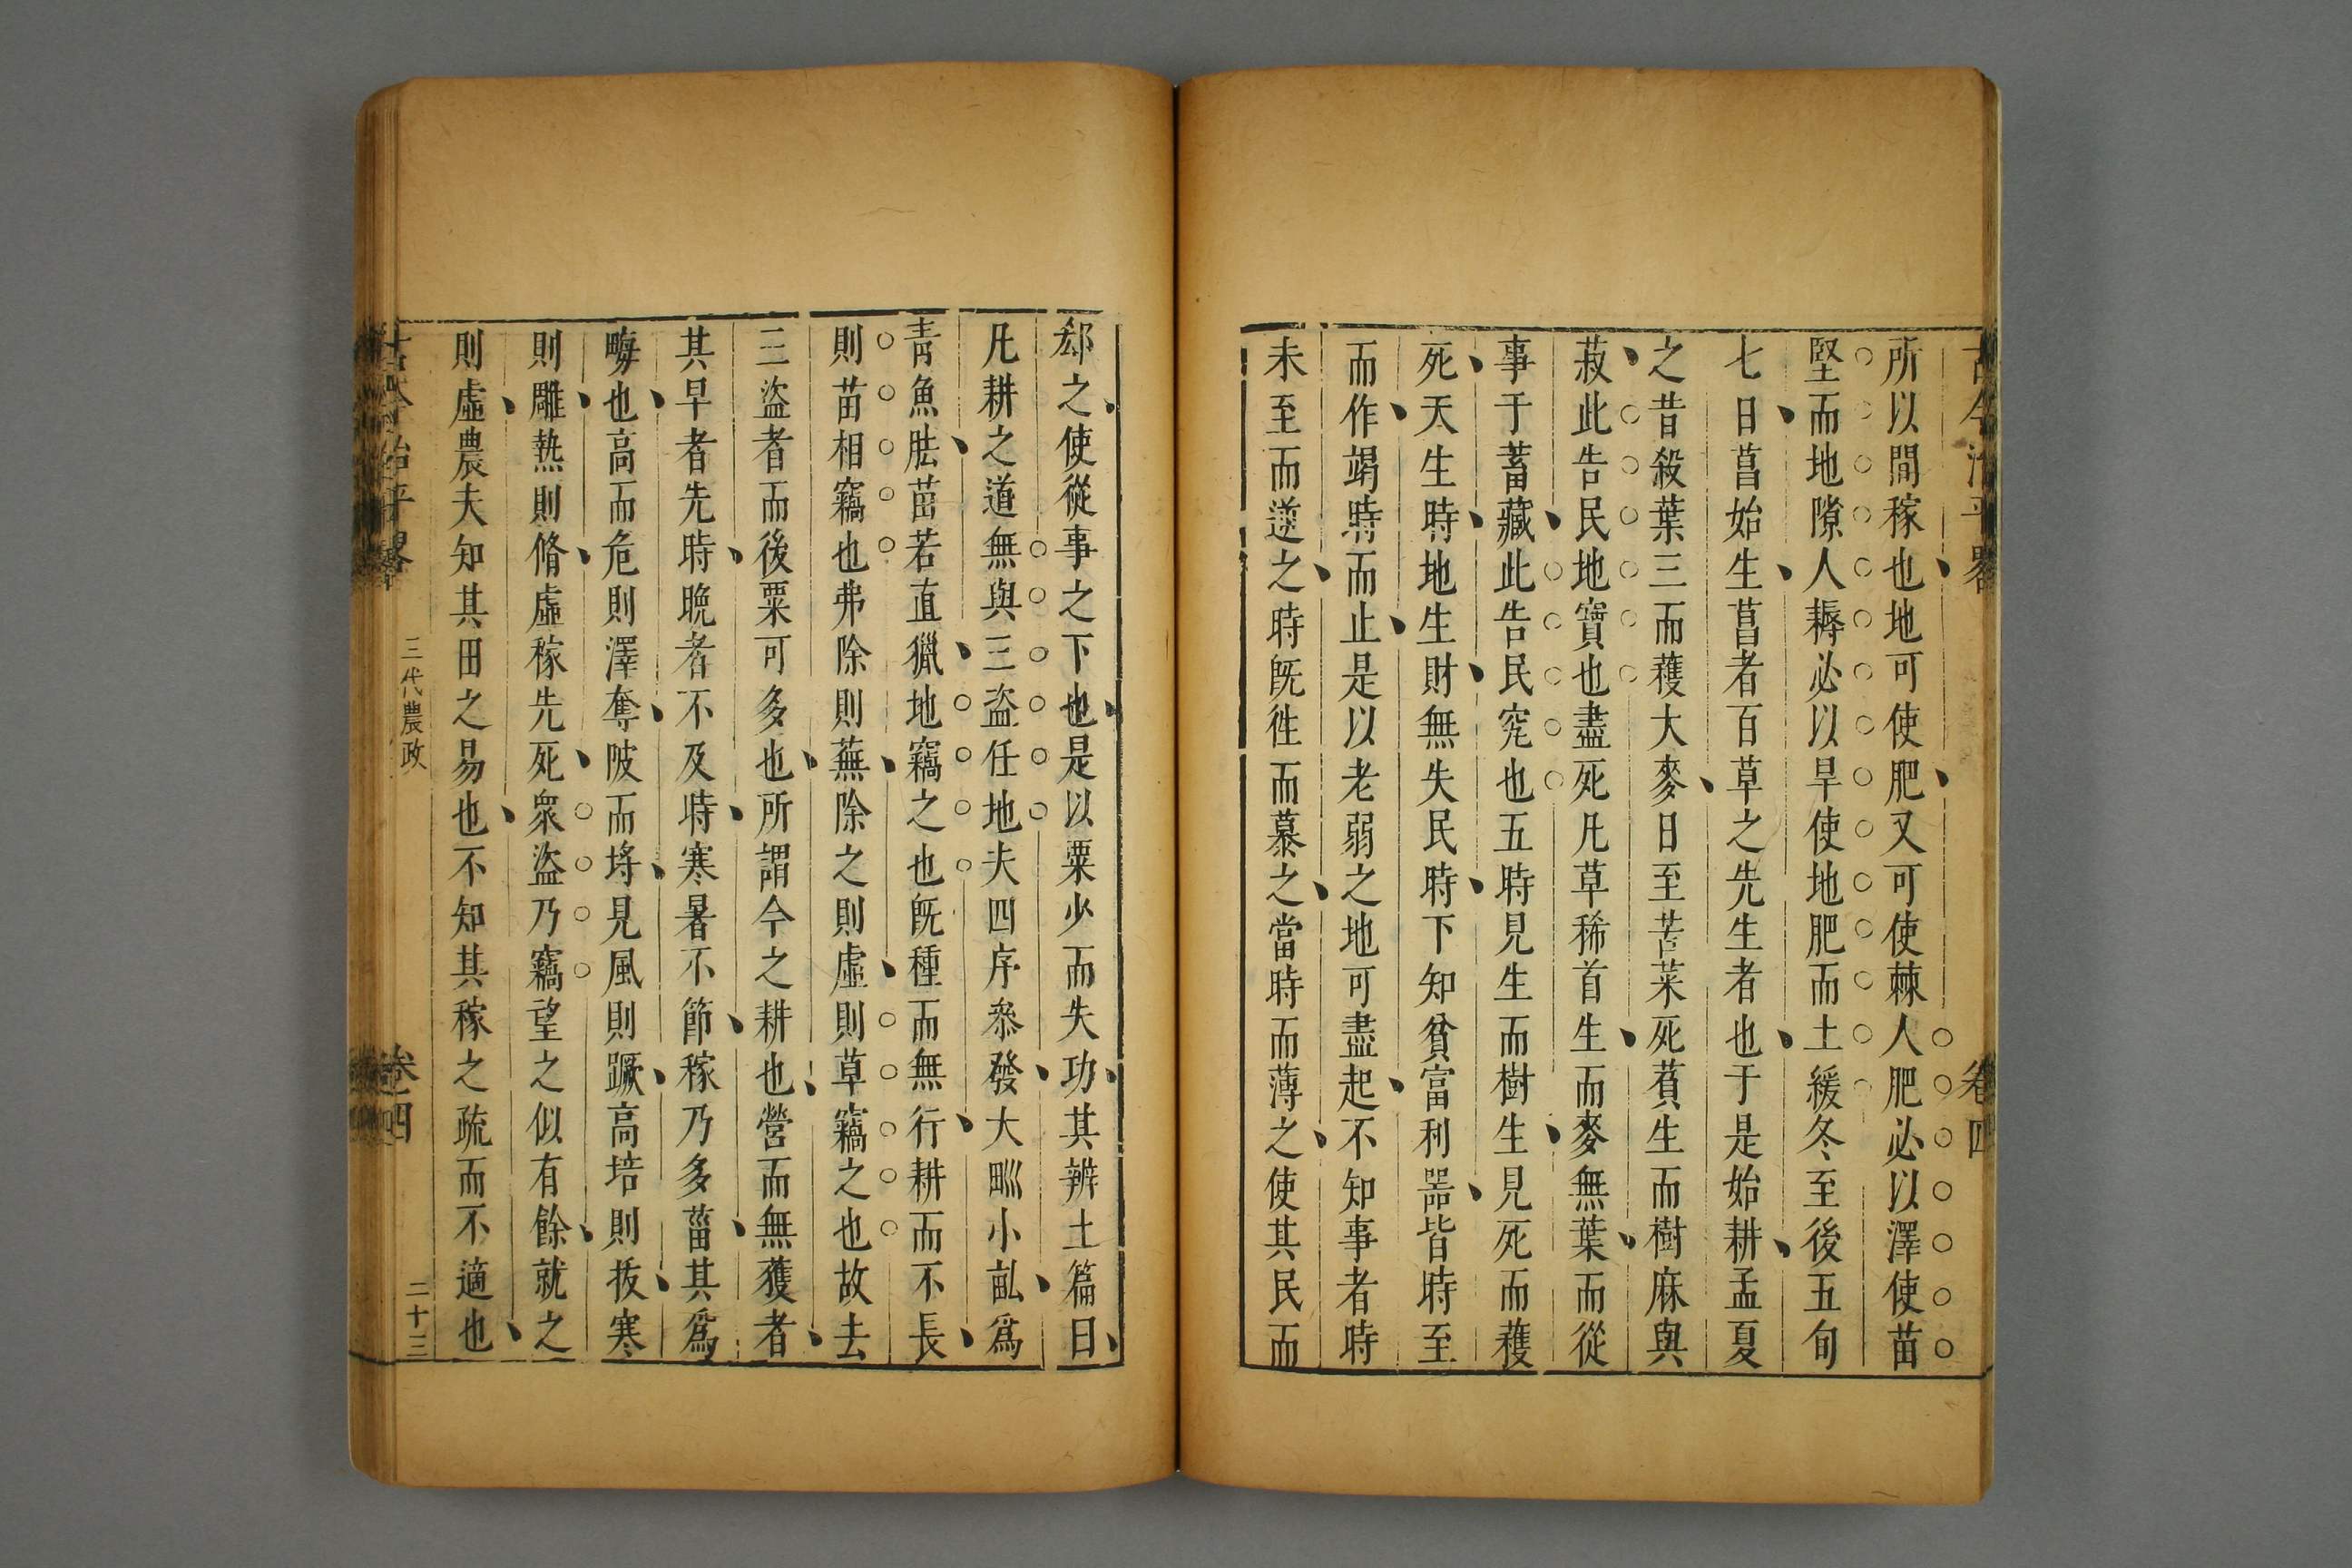 古今治平畧
卷四
所以間稼也地可使肥又可使棘人肥必以澤使苗
堅而地隙人耨必以旱使地肥而土緩冬至後五旬
七日菖始生菖者百草之先生者也于是始耕孟夏
之昔殺葉三而穫大麥日至苦菜死蒉生而樹麻與
菽此告民地寶也盡死凡草稀首生而麥無葉而從
事于蓄藏此告民究也五時見生而樹生見死而穫
死天生時地生財無失民時下知貧富利器皆時至
而作竭時而止是以老弱之地可盡起不知事者時
未至而逆之時旣徃而慕之當時而薄之使其民而
郄之使從事之下也是以粟少而失功其辨土篇曰
凡耕之道無與三盗任地夫四序叅發大甽小畆爲
青魚胠苗若直獵地竊之也旣種而無行耕而不長
則苗相竊也弗除則蕪除之則虛則草竊之也故去
三盜者而後粟可多也所謂今之耕也營而無獲者
其早者先時晩者不及時寒暑不節稼乃多菑其爲
畮也高而危則澤奪陂而埓見風則蹶高培則拔寒
則雕熱則脩虛稼先死衆盜乃竊望之似有餘就之
則虛農夫知其田之易也不知其稼之疏而不適也
古今治平畧
三代農政
卷四
二十三